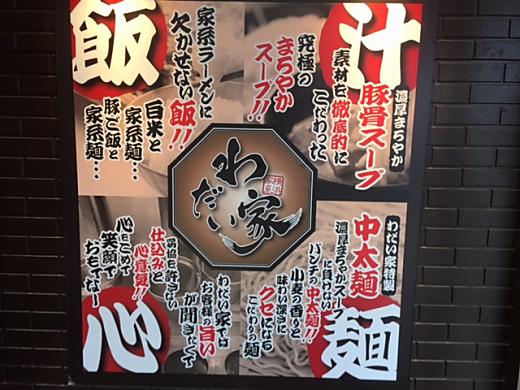 汁
濃厚まろやか
豚骨スープ
素材を徹底的に
こだわった
究極の
まろやか
スープ!!
飯
家系ラーメンに
欠かせない飯!!
白米と
家系麺…
豚ご飯と
家系麺…
わだい家
麺
わだい家特製
中太麺
濃厚まろやかスープ
に負けない
パンチの中太麺!!
小麦の香りと
味わい深さに
クセになる
こだわりの麺
心
わだい家では
お客様の旨い
が聞きたくて
妥協を許さない
仕込みと
心意気!!
心をこめて
笑顔で
おもてなし